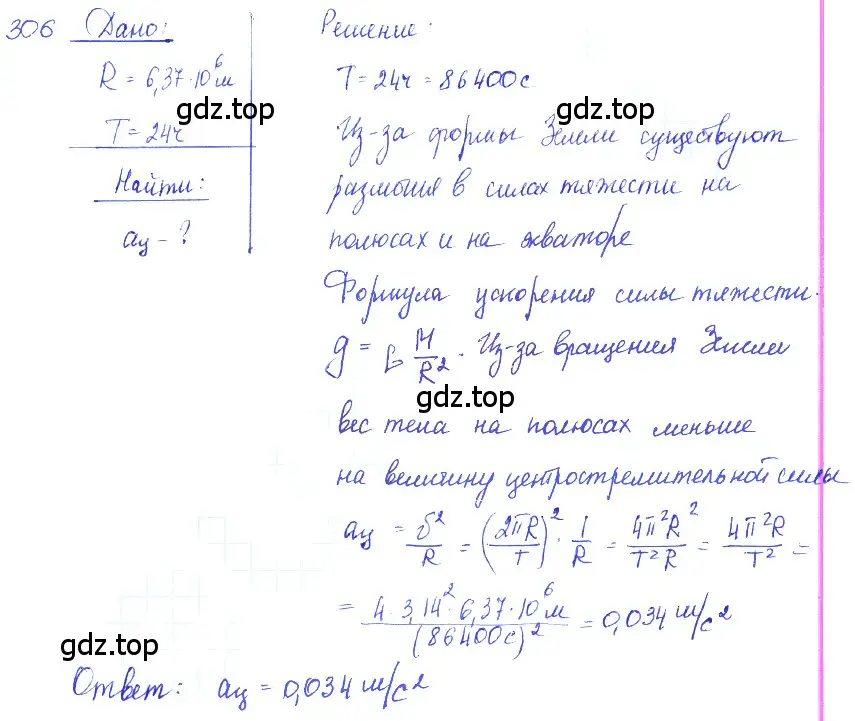 306 Дано: Решение:
R = 6,37·10⁶м T = 24ч = 86400с
gdz.top gdz.top
T = 24ч Из-за формы Земли существуют
Найти: различия в силах тяжести на
aц - ? полюсах и на экваторе
Формула ускорения силы тяжести.
gdz.top
g = G M/R². Из-за вращения Земли
gdz.top
вес тела на полюсах меньше
на величину центростремительной силы
aц = υ²/R = (2πR/T)² · 1/R = 4π²R²/T²R = 4π²R/T² =
= 4·3,14²·6,37·10⁶м/(86400с)² = 0,034 м/с²
gdz.top gdz.top
Ответ: aц = 0,034 м/с²